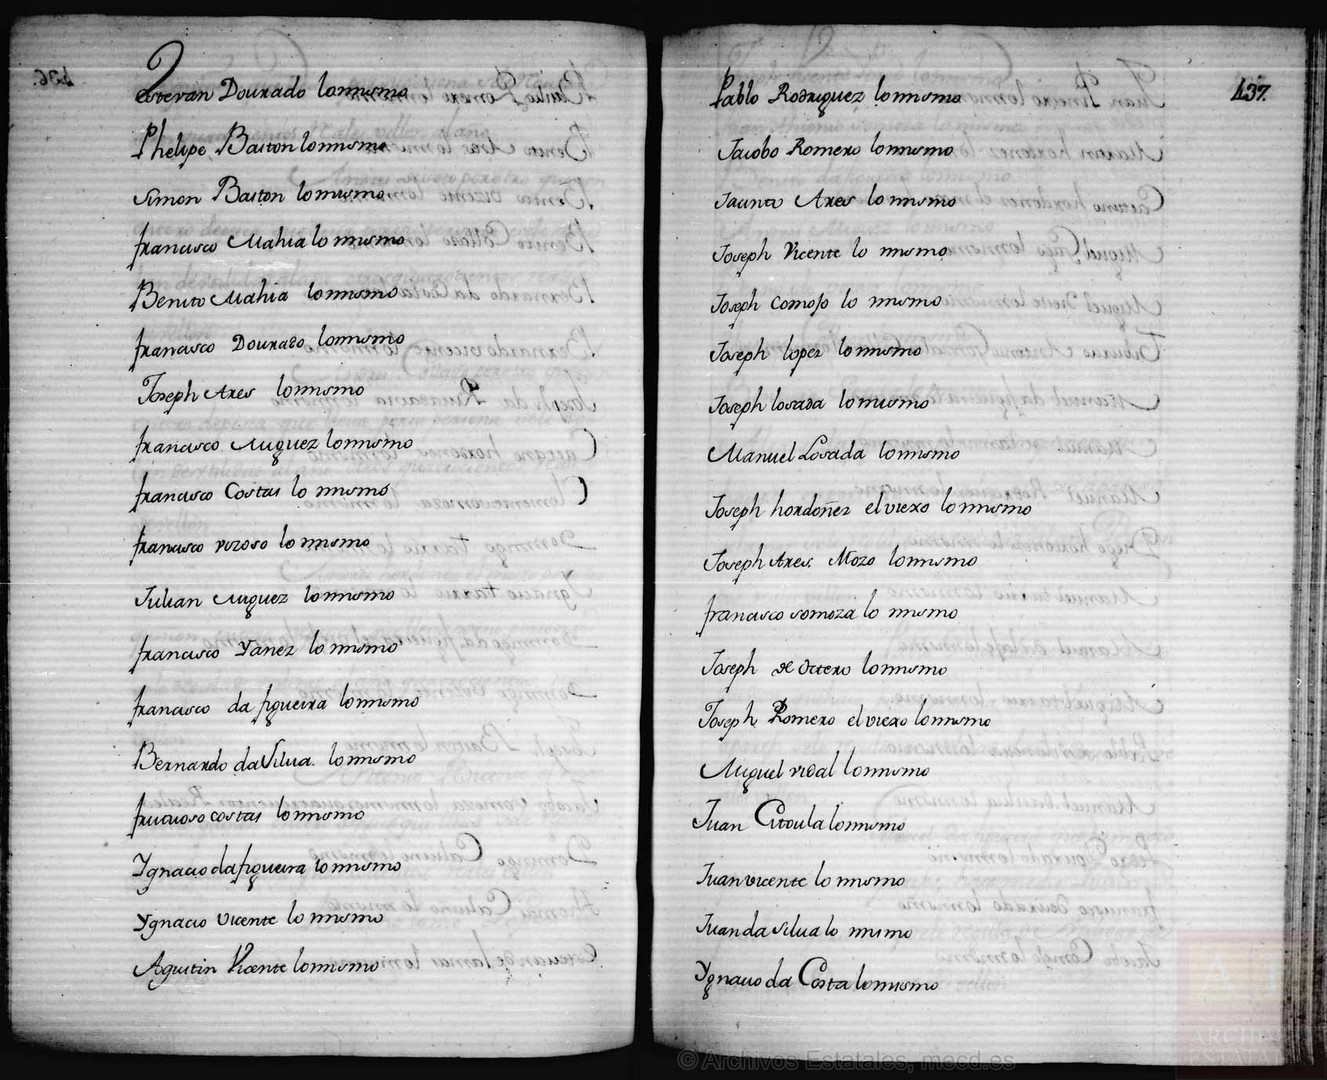 Estevan Dourado lo mismo
Phelipe Baston lo mismo
Simon Baston lo mismo
francisco Mahia lo mismo
Benito Mahia lo mismo
francisco Dourado lo mismo
Joseph Ares lo mismo
francisco Miguez lo mismo
francisco Costas lo mismo
francisco vozoso lo mismo
Julian Miguez lo mismo
francisco Yanez lo mismo
francisco da figueira lo mismo
Bernardo da Silva lo mismo
frutuoso costas lo mismo
Ygnacio da figueira lo mismo
Ygnacio Vicente lo mismo
Agustin Vicente lo mismo
437.
Pablo Rodriguez lo mismo
Jacobo Romero lo mismo
Ares lo mismo
Joseph Vicente lo mismo
Joseph Comojo lo mismo
Joseph lopez lo mismo
Joseph losada lo mismo
Manuel Losada lo mismo
Joseph hordoñez el viexo lo mismo
Joseph Ares Mozo lo mismo
francisco somoza lo mismo
Joseph de Outero lo mismo
Joseph Romero el viexo lo mismo
Miguel vidal lo mismo
Juan Citoula lo mismo
Juan vicente lo mismo
Juan da silva lo mismo
Ygnacio da Costa lo mismo
© Archivos Estatales, mecd.es